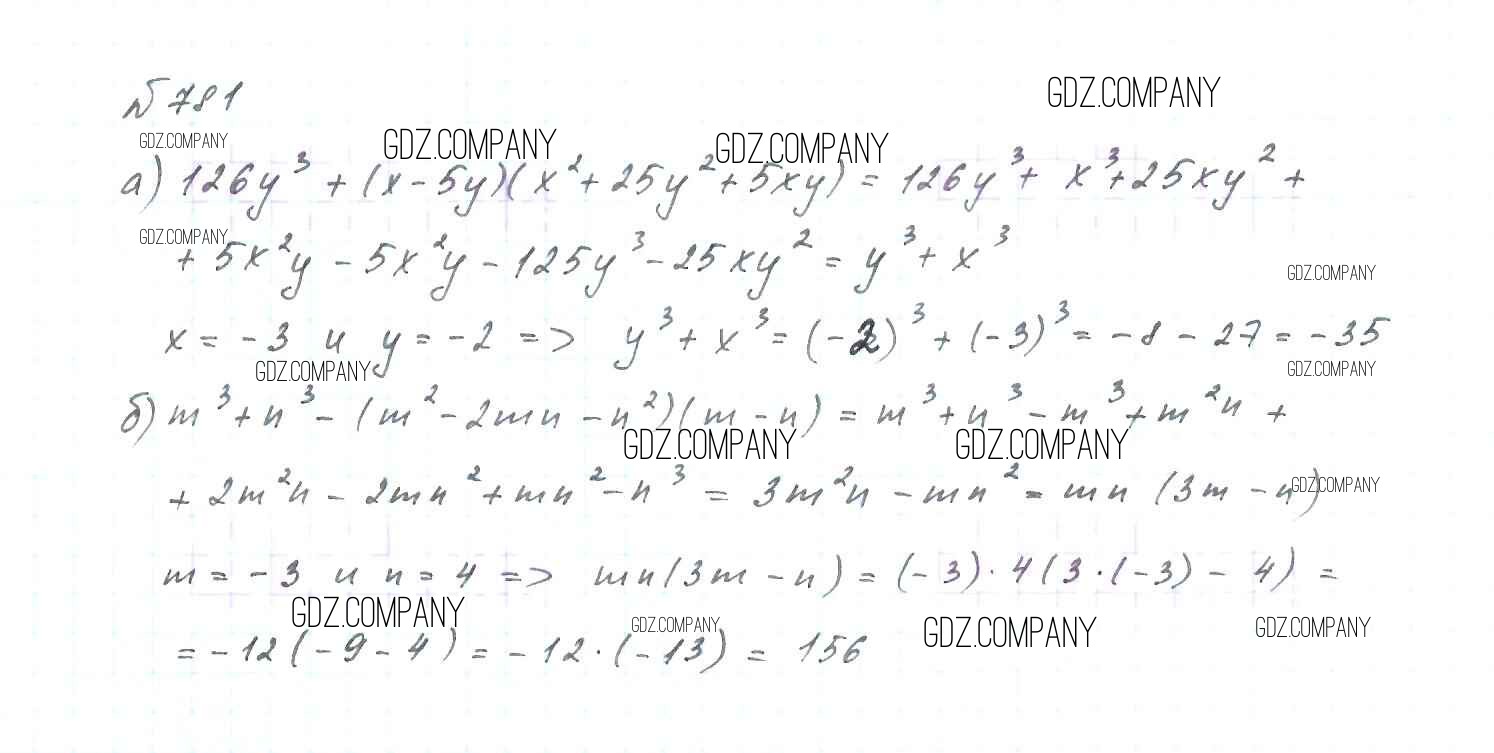 № 781
GDZ.COMPANY
GDZ.COMPANY GDZ.COMPANY GDZ.COMPANY
а) 126y³ + (x - 5y)(x² + 25y² + 5xy) = 126y³ + x³ + 25xy² +
GDZ.COMPANY
+ 5x²y - 5x²y - 125y³ - 25xy² = y³ + x³
GDZ.COMPANY
x = -3 и y = -2 => y³ + x³ = (-2)³ + (-3)³ = -8 - 27 = -35
GDZ.COMPANY GDZ.COMPANY
б) m³ + n³ - (m² - 2mn - n²)(m - n) = m³ + n³ - m³ + m²n +
GDZ.COMPANY GDZ.COMPANY
+ 2m²n - 2mn² + mn² - n³ = 3m²n - mn² = mn (3m - n)
GDZ.COMPANY
m = -3 и n = 4 => mn(3m - n) = (-3) · 4(3 · (-3) - 4) =
GDZ.COMPANY GDZ.COMPANY GDZ.COMPANY GDZ.COMPANY
= -12(-9 - 4) = -12 · (-13) = 156